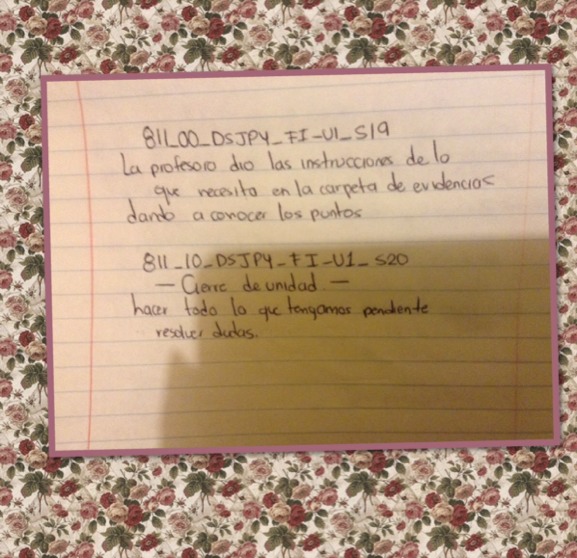 811_00_DSJPY_FI-U1_S19
La profesora dio las instrucciones de lo
que necesito en la carpeta de evidencias
dando a conocer los puntos
811_10_DSJPY_FI-U1_S20
— Cierre de unidad. —
hacer todo lo que tengamos pendiente
resolver dudas.